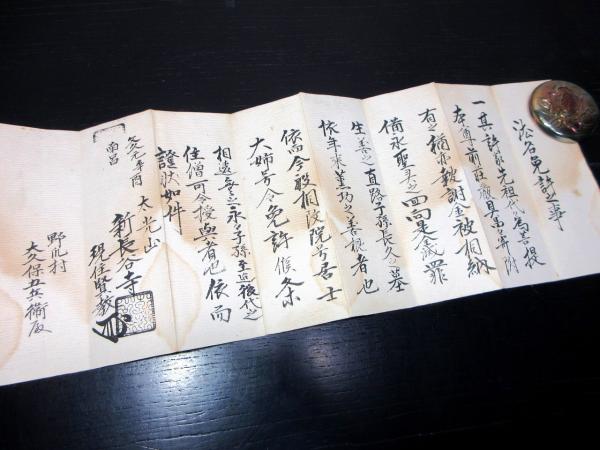 法名免許之事
一其許家先祖代々為菩提
本尊前荘厳具為寄附
有之猶亦秡謝金被相納
備永聖之四向是滅罪
生善之直路子孫長久之基
依年来薫功之善根者也
依而今般相改院号居士
大姉号令免許候条
相違無之永々子孫至迄後代之
住僧可令授與者也依而
證状如件
文久元年酉
南呂
太光山
新長谷寺
現住賢
野爪村
大久保丑兵衛殿